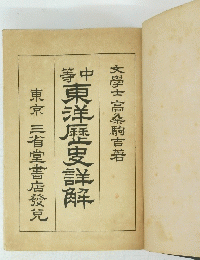 文學士高桑駒吉著
中等
東洋歷史詳解
東京 三省堂書店發兌